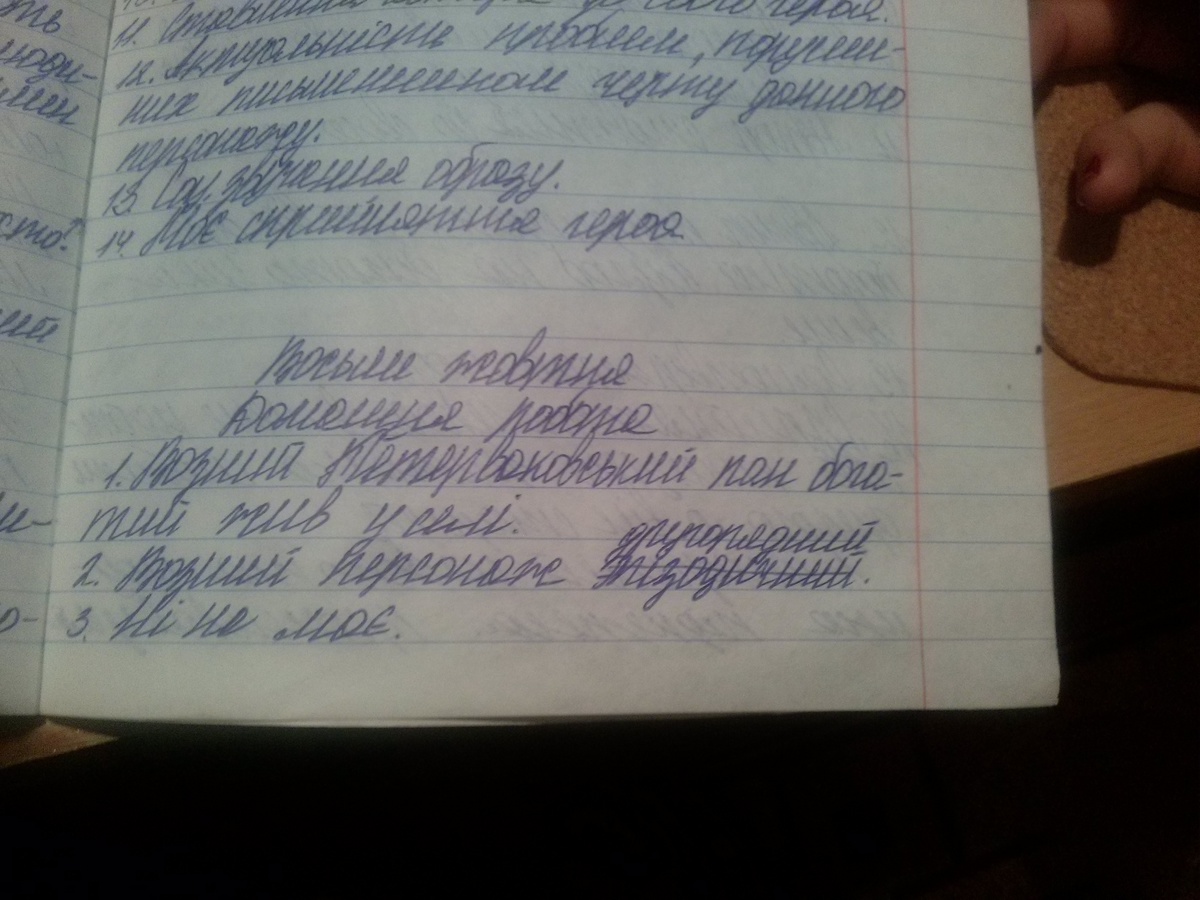 11. Ставлення автора до свого героя.
12. Актуальність проблем, поруше-
них письменником через даного
персонажу.
13. Соц. значення образу.
14. Моє сприйняття героя
Восьме жовтня
Домашня робота
1. Возний Тетерваковський пан бога-
тий жив у селі.
2. Возний Персонаж другорядний
епізодичний.
3. Ні не має.